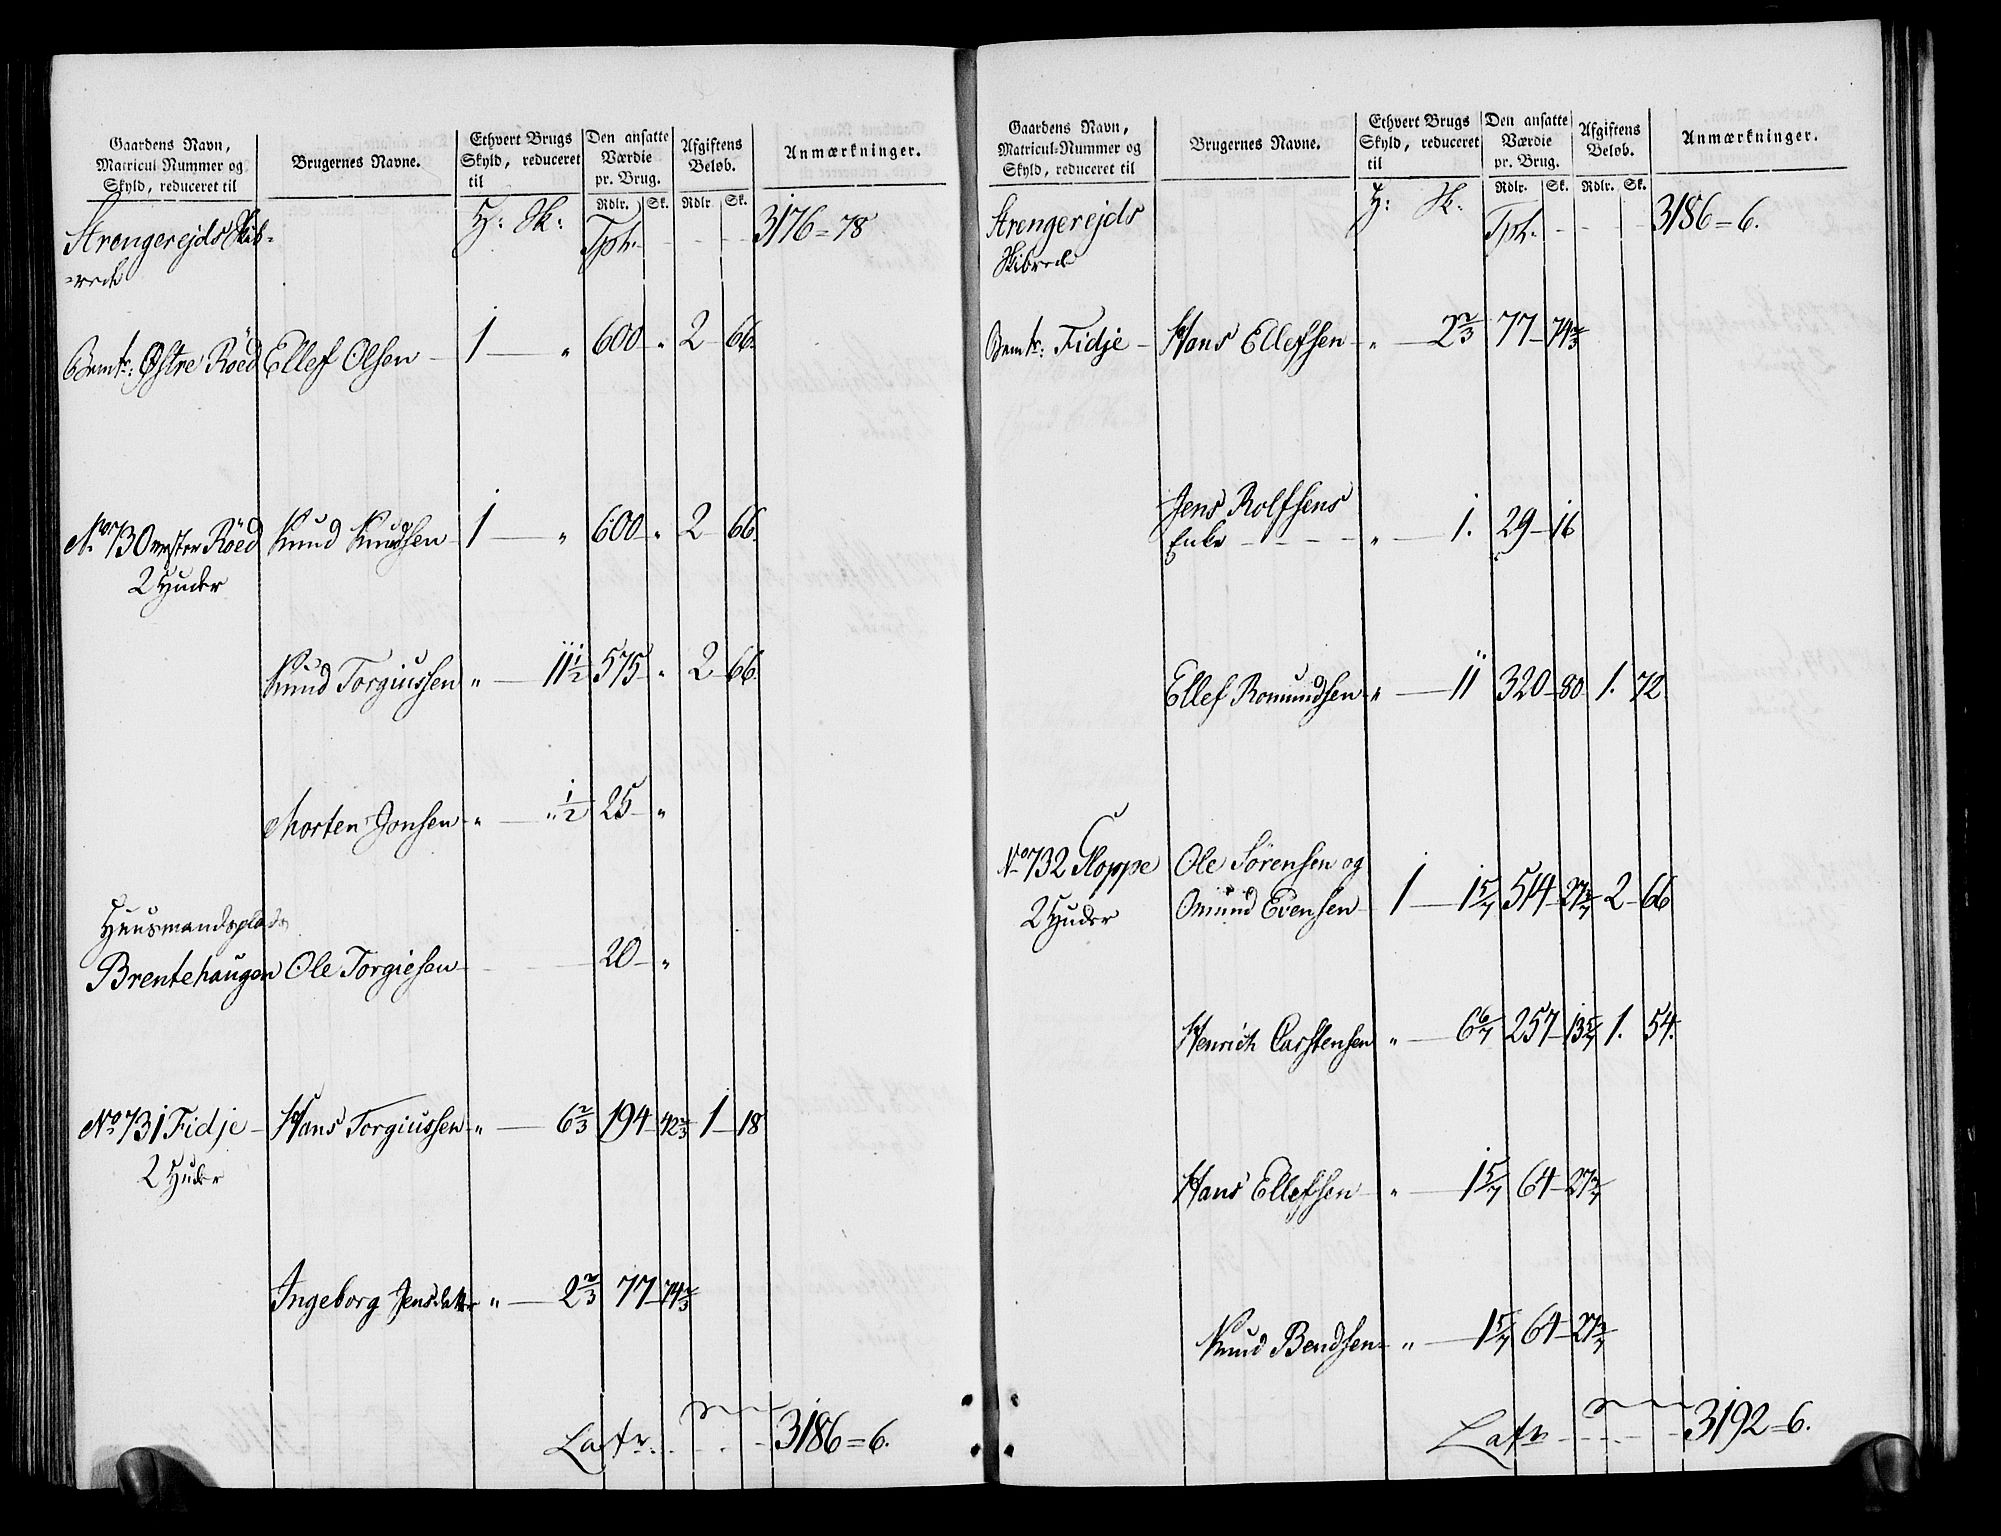 Gaardens Navn,
Matricul-Nummer og
Skyld, reduceret til
Brugernes Navne.
Ethvert Brugs
Skyld, reduceret
til
Den ansatte
Værdie
pr. Brug.
Afgiftens
Beløb.
Anmærkninger.
Rdlr. Sk. Rdlr. Sk.
Strengerejds Skib-
-rede H: Sk: Tpt. - - - - 3176=78
Bemte: Østre Röed Ellef Olsen - 1 - " 600 - " 2 - 66.
No 730 vester Röed Knud Knudsen - 1 - " 600 - " 2 - 66.
2 Huder
Knud Torgiussen " - 11 1/2 575 - " 2 - 66.
Morten Jonsen - " - " 1/2 25 - "
Huusmandsplads
Brentehaugen Ole Torgiesen - 20 - "
No 731 Fidje - Hans Torgiussen - " - 6 2/3 194 - 42 2/3 1 - 18
2 Huder
Ingeborg Jensdatter " - 2 2/3 77 - 74 2/3
Latr. - - - 3186=6.
Gaardens Navn,
Matricul-Nummer og
Skyld, reduceret til
Brugernes Navne.
Ethvert Brugs
Skyld, reduceret
til
Den ansatte
Værdie
pr. Brug.
Afgiftens
Beløb.
Anmærkninger.
Rdlr. Sk. Rdlr. Sk.
Strengerejds
Skibrede H: Sk. Tpt. - - - - 3186=6.
Bemte: Fidje - Hans Ellefsen - " - 2 2/3 77 - 74 2/3
Jens Rolfsens
Enke - - - - " - 1. 29 - 16
Ellef Romundsen - " - 11 320 - 80 1. 72
No 732 Kloppe Ole Sörensen og
2 Huder Omund Evensen - 1 - 1 5/7 514 - 27 3/7 2 - 66
Henrich Carstensen " - 6 6/7 257 - 13 5/7 1. 54.
Hans Ellefsen - " - 1 5/7 64 - 27 3/7
Knud Bendsen - " - 1 5/7 64 - 27 3/7
Latr. - - - - 3192=6.